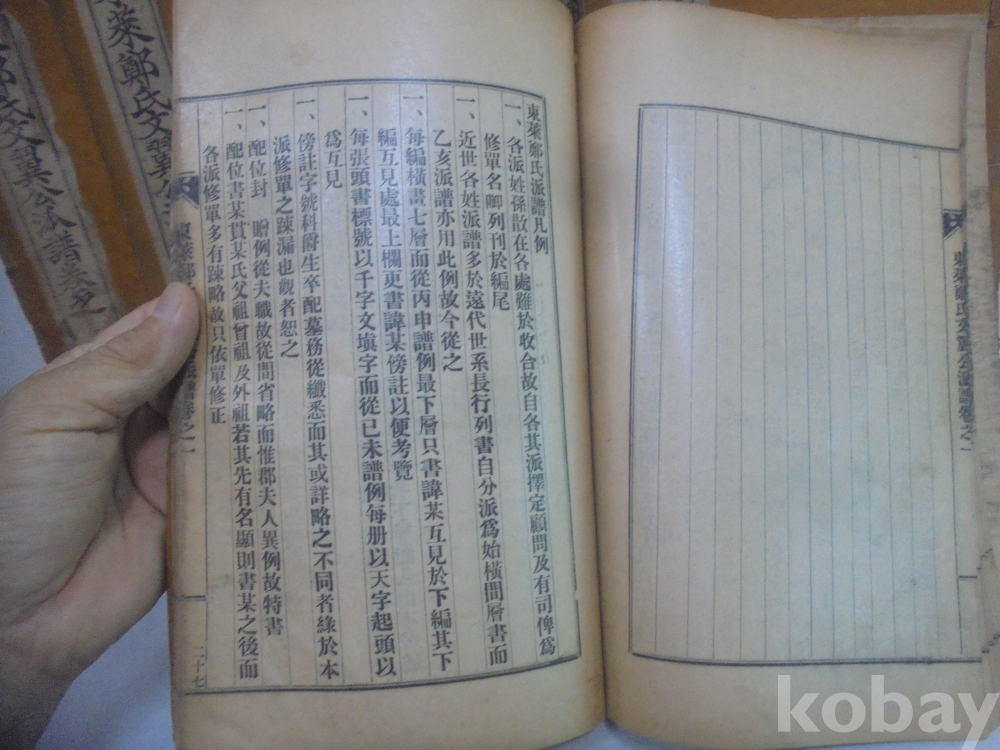 東萊鄭氏派譜凡例
一、各派姓孫散在各處難於收合故自各其派擇定顧問及有司俾爲
修單名啣列刊於編尾
一、近世各姓派譜多於遠代世系長行列書自分派爲始橫間層書而
乙亥派譜亦用此例故今從之
一、每編橫畫七層而從丙申譜例最下層只書諱某互見於下編其下
編互見處最上欄更書諱某傍註以便考覽
一、每張頭書標號以千字文塡字而從已未譜例每册以天字起頭以
爲互見
一、傍註字號科爵生卒配墓務從纖悉而其或詳略之不同者緣於本
派修單之疎漏也觀者恕之
一、配位封 贈例從夫職故從間省略而惟郡夫人異例故特書
一、配位書某貫某氏父祖曾祖及外祖若其先有名顯則書某之後而
各派修單多有疎略故只依單修正
東萊鄭氏 派譜卷之一
二十七
東萊鄭氏文翼公派譜卷之一
萊鄭氏文翼公
鄭氏文翼公派譜卷之
kobay